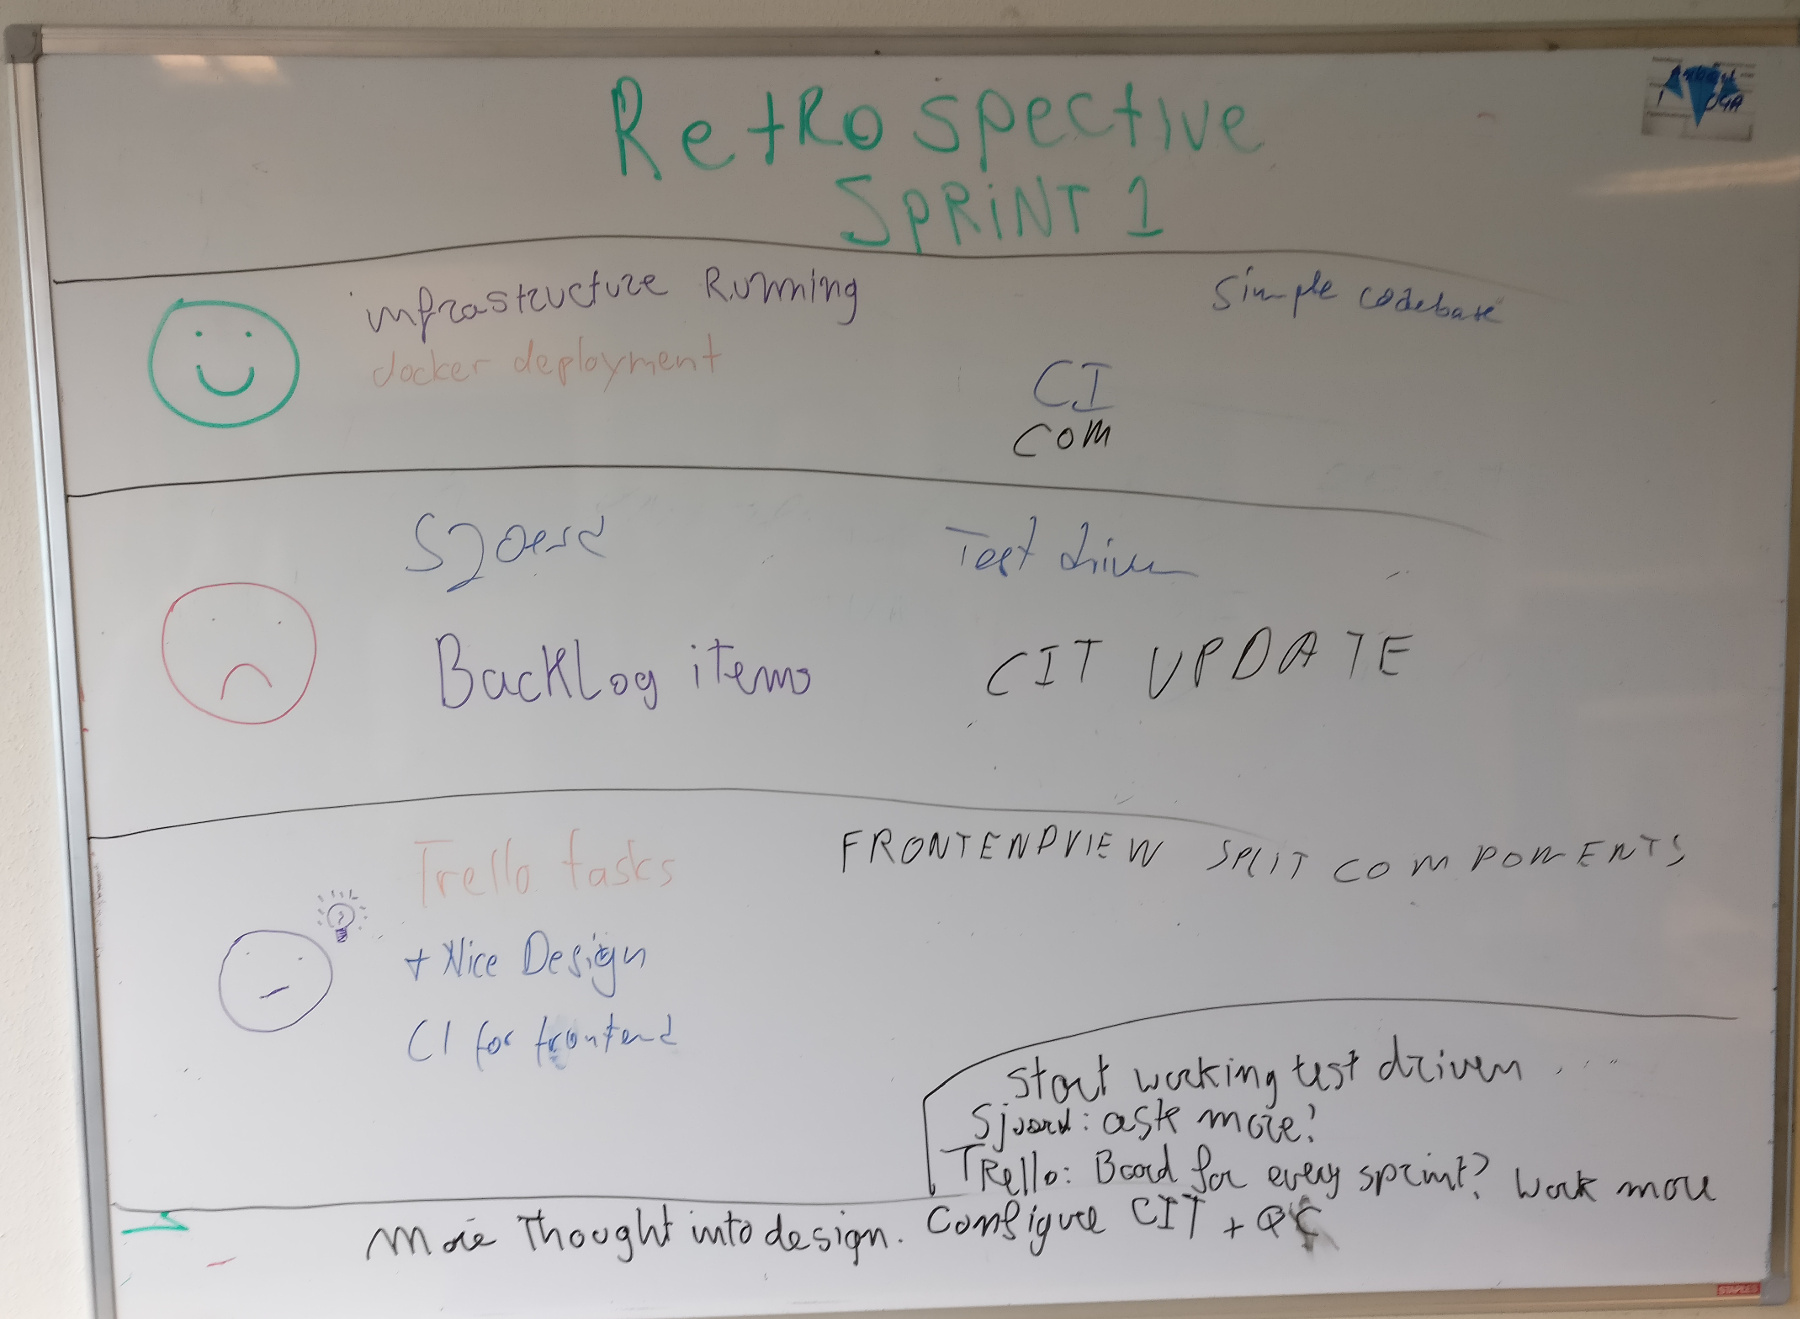 Retrospective
SPRiNT 1
infrastructure Running
Simple codebase
docker deployment
CI
COM
Sjoerd
Test driven
Backlog items
CIT UPDATE
Trello tasks
FRONTENDVIEW SPLIT COMPONENTS
+ Nice Design
CI for frontend
Start working test driven ...
Sjoerd: ask more!
TRello: Board for every sprint? Work more
More Thought into design. Configure CIT + QC
STAPLES